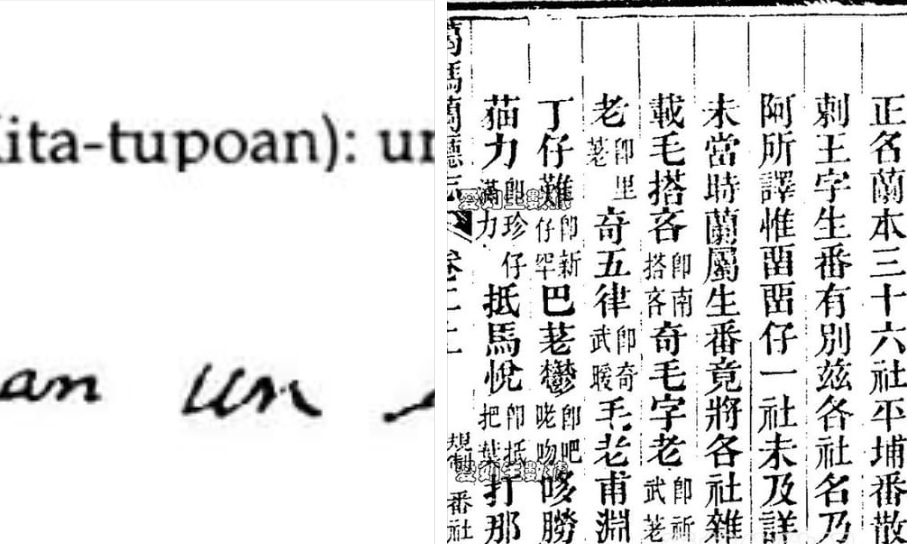 ita-tupoan): un
an un
正名蘭本三十六社平埔番散
剌王字生番有別茲各社名乃
阿所譯惟𠚏𠚏仔一社未及詳
未當時蘭屬生番竟將各社雜
載毛搭吝即南搭吝奇毛字老即祈武荖
老即里荖奇五律即奇武暖毛老甫淵
丁仔難即新仔罕巴荖鬱即吧咾吻哆朥
猫力即珍仔滿力抵馬悅即抵把葉打那
噶瑪蘭廳志 卷二上 番社